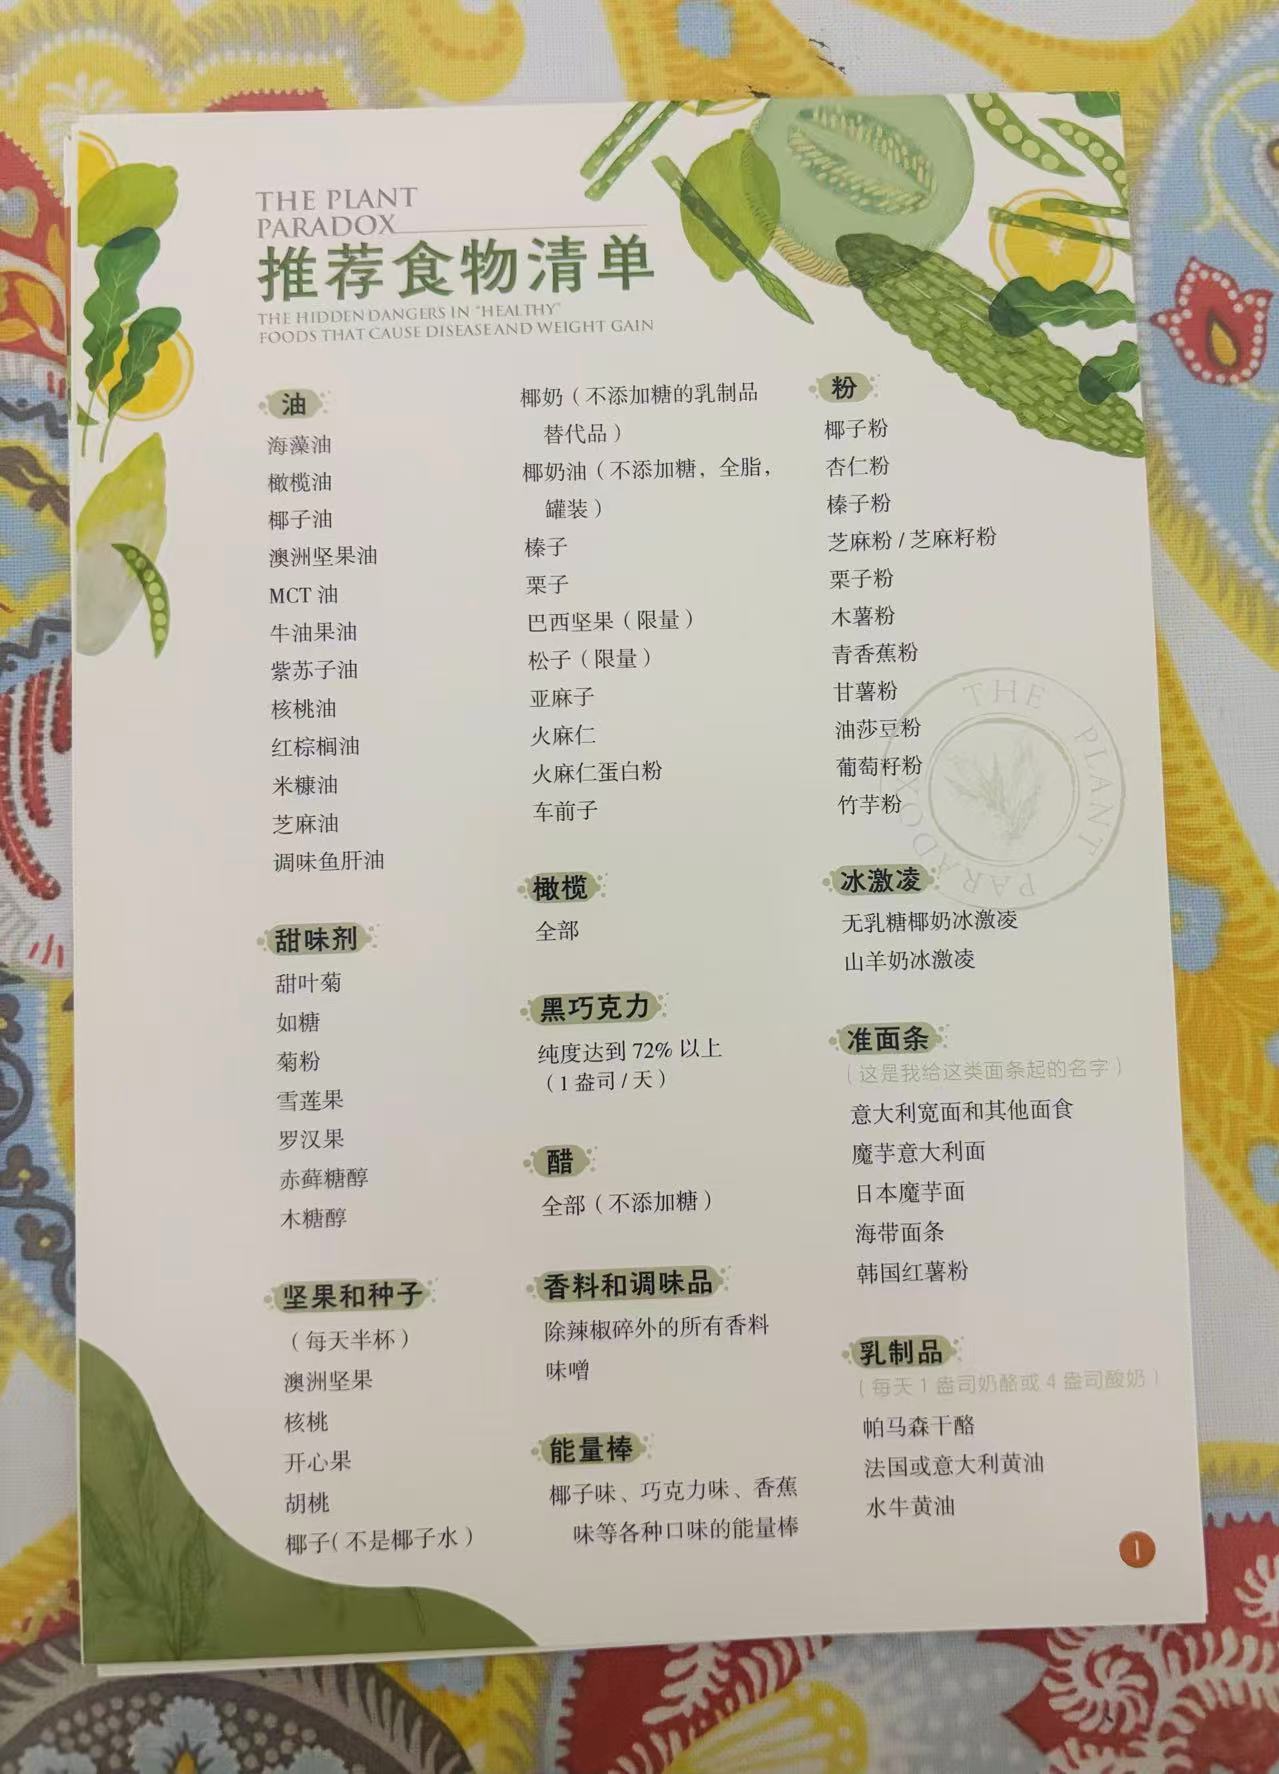 THE PLANT
PARADOX
推荐食物清单
THE HIDDEN DANGERS IN "HEALTHY"
FOODS THAT CAUSE DISEASE AND WEIGHT GAIN
油
海藻油
橄榄油
椰子油
澳洲坚果油
MCT 油
牛油果油
紫苏子油
核桃油
红棕榈油
米糠油
芝麻油
调味鱼肝油
甜味剂
甜叶菊
如糖
菊粉
雪莲果
罗汉果
赤藓糖醇
木糖醇
坚果和种子
（每天半杯）
澳洲坚果
核桃
开心果
胡桃
椰子（不是椰子水）
椰奶（不添加糖的乳制品
替代品）
椰奶油（不添加糖，全脂，
罐装）
榛子
栗子
巴西坚果（限量）
松子（限量）
亚麻子
火麻仁
火麻仁蛋白粉
车前子
橄榄
全部
黑巧克力
纯度达到 72% 以上
（1 盎司 / 天）
醋
全部（不添加糖）
香料和调味品
除辣椒碎外的所有香料
味噌
能量棒
椰子味、巧克力味、香蕉
味等各种口味的能量棒
粉
椰子粉
杏仁粉
榛子粉
芝麻粉 / 芝麻籽粉
栗子粉
木薯粉
青香蕉粉
甘薯粉
油莎豆粉
葡萄籽粉
竹芋粉
THE PLANT PARADOX
冰激凌
无乳糖椰奶冰激凌
山羊奶冰激凌
准面条
（这是我给这类面条起的名字）
意大利宽面和其他面食
魔芋意大利面
日本魔芋面
海带面条
韩国红薯粉
乳制品
（每天 1 盎司奶酪或 4 盎司酸奶）
帕马森干酪
法国或意大利黄油
水牛黄油
1